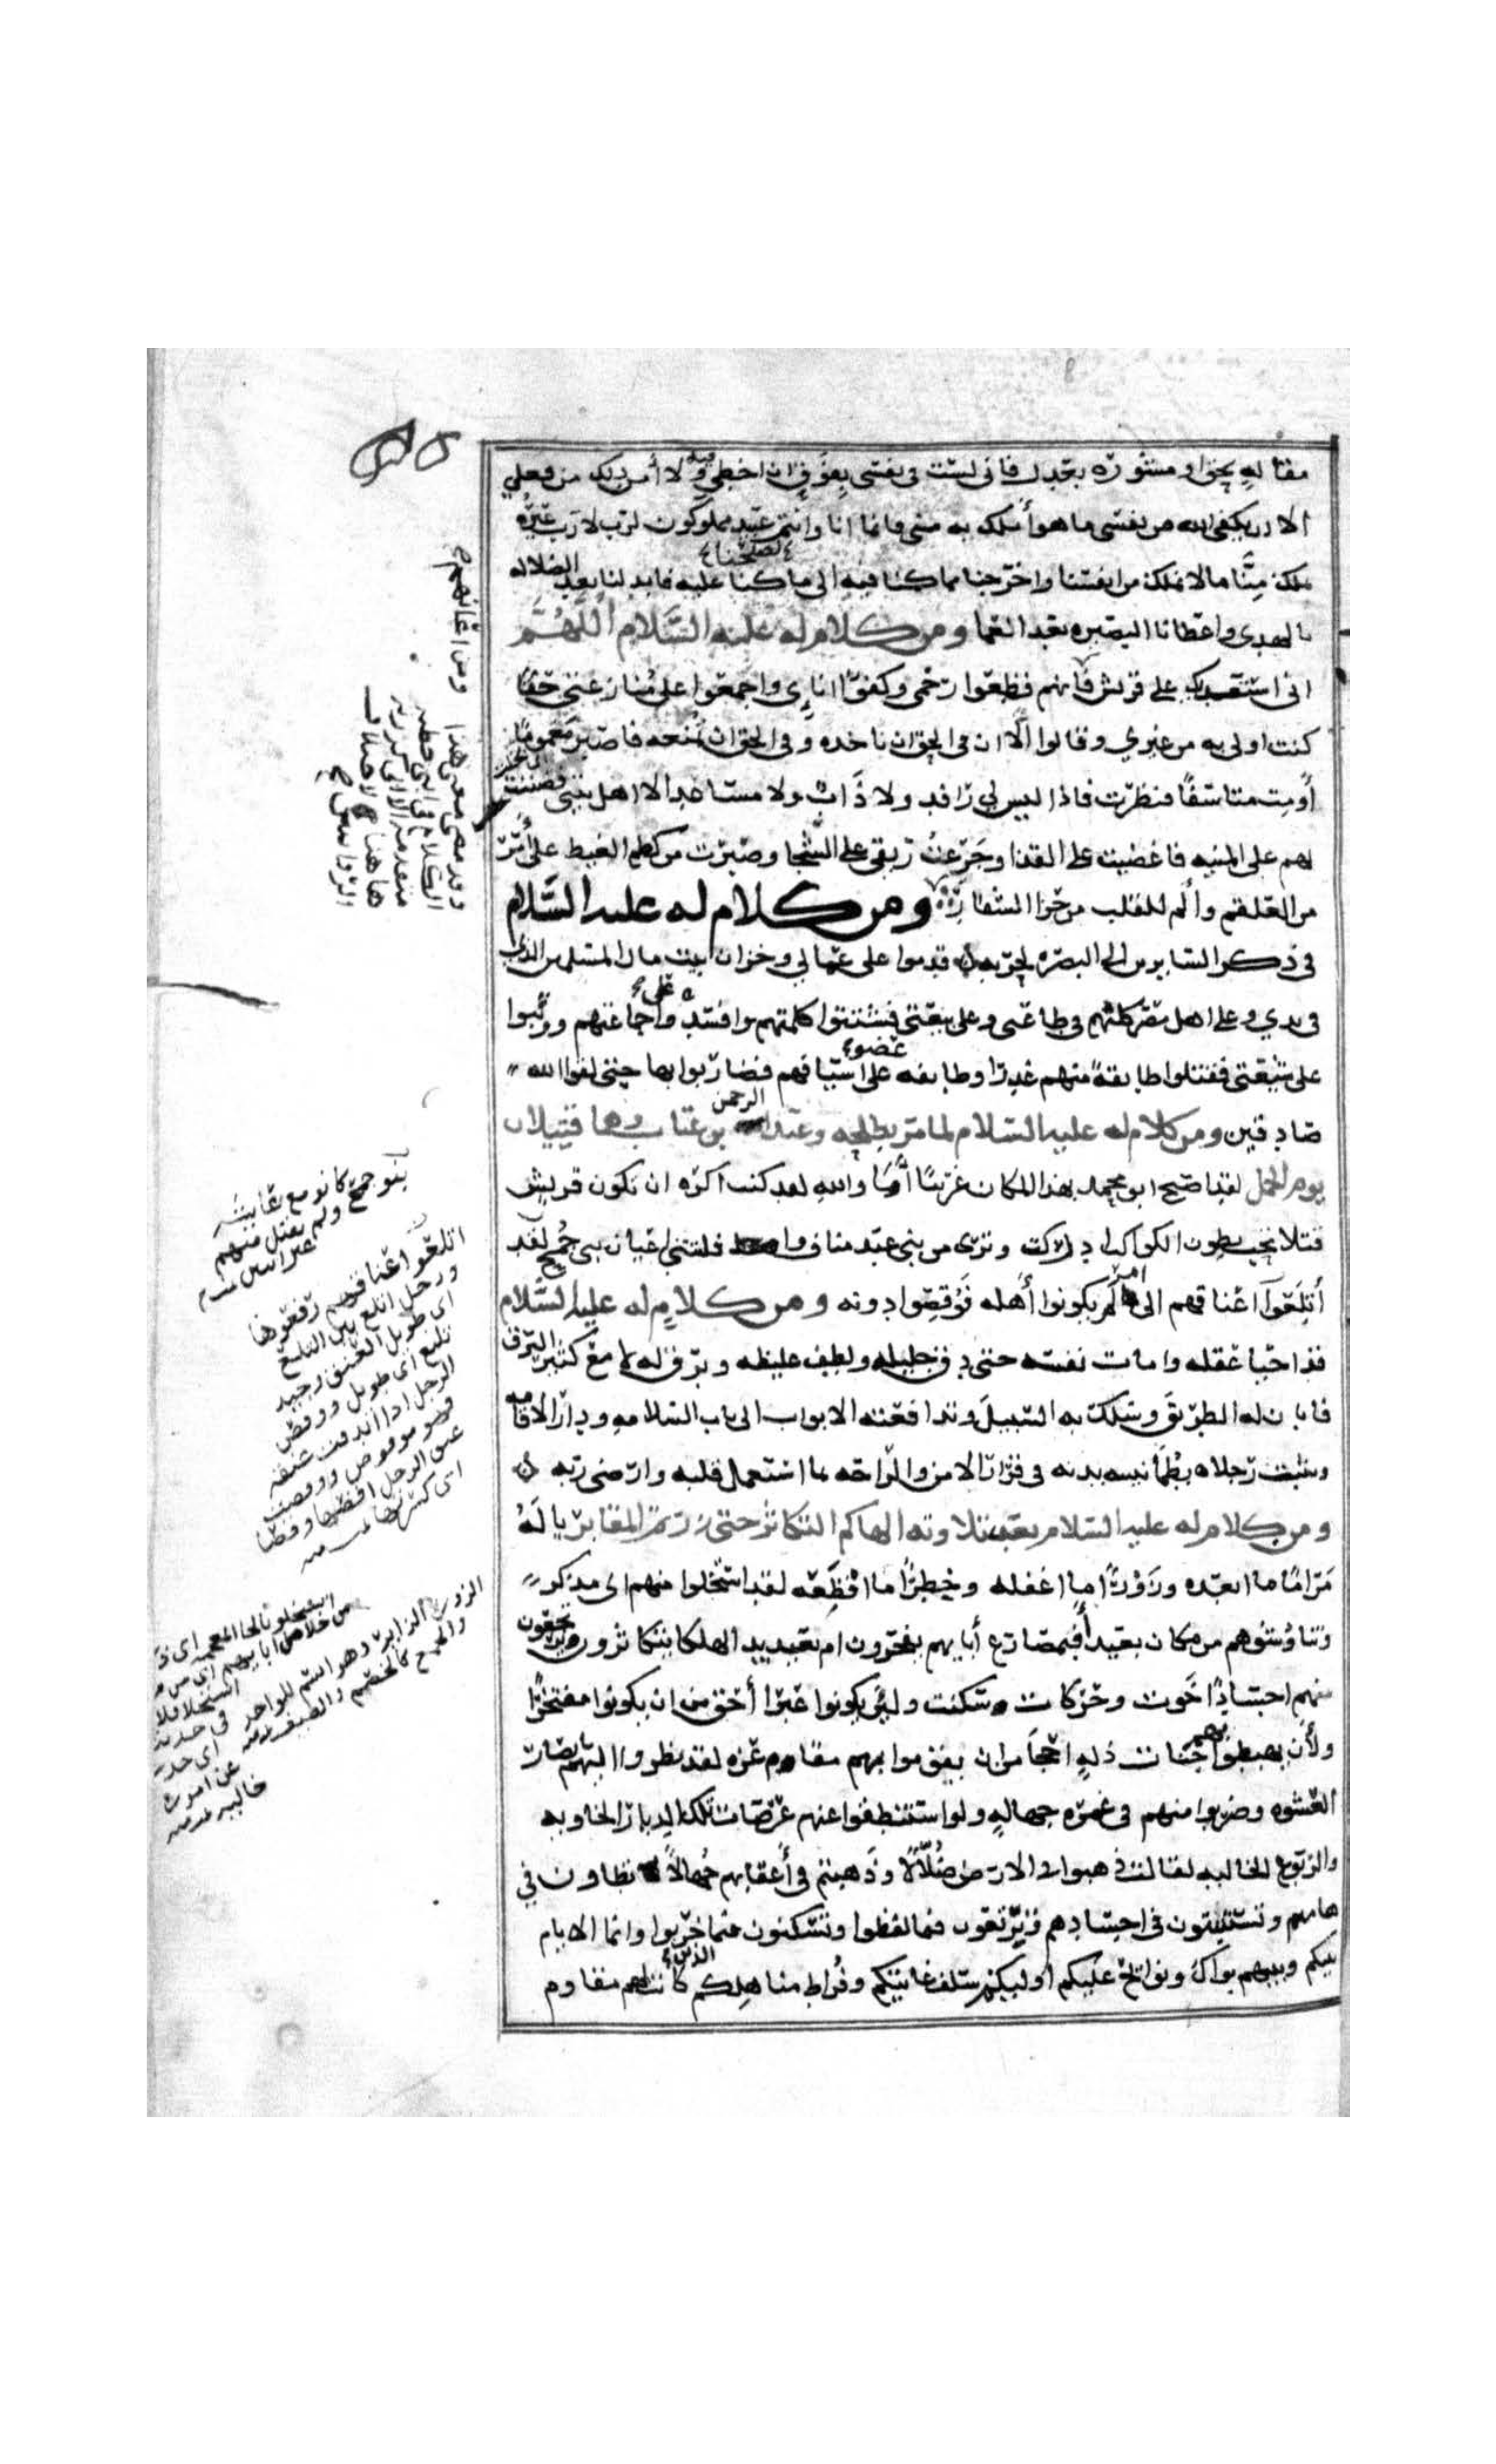 مقاله بحق او مشوره بعدل فاني لست في نفسي بفوق ان اخطي ولا أمن ذلك من فعلي
الا ان يكفي الله من نفسي ما هو أملك به مني فانما انا وانتم عبيد مملوكون لرب لا رب غيره
يملك مِنَّا ما لا نملك من انفسنا واخرجنا مما كنا فيه الى ما صلحنا عليه فابدلنا بعد الضلاله
بالهدى واعطانا البصيره بعد العما ومن كلام له عليه السَّلام اللَّهُمَّ
اني استعديك على قريش فأنهم قطعوا رحمي وكفوا انايي واجمعوا على مُنازعتي حقا
كنت اولى به من غيري وقالوا ألا ان في الحق ان ناخذه وفي الحق ان تمنعه فاصبر مغموما
أو مت متاسفًا فنظرت فاذا ليس لي رافد ولا ذَابٌ ولا مساعد الا اهل بيتي فضننت
بهم على المنيه فاغضيت على القذا وجَرِعتُ ريقي على الشَّجا وصبرت من كظم الغيظ على أمَرَّ
من العلقم وألم للقلب من حز الشفار ومن كلام له عليه السَّلام
في ذكر السايرين الى البصره لحربه فقدموا على عمالي وخزان بيت مال المسلمين الذي
في يدي وعلى اهل مصر كلهم في طاعتي وعلى بيعتي فشتتوا كلمتهم وافسدوا على جماعتهم ووثبوا
على شيعتي فقتلوا طايفةً منهم غدرا وطايفه عضوا على اسيافهم فضاربوا بها حتى لقوا الله
صادقين ومن كلام له عليه السلام لما مر بطلحه وعبد الرحمن بن عتاب وهما قتيلان
يوم الجمل لقد اصبح ابو محمد بهذا المكان غريبًا أمَا والله لقد كنت اكره ان تكون قريش
قتلا تحت بطون الكواكب ادركت وتري من بني عبد مناف وافلتتني اعيان بني جُمح لقد
أتلَعُوا اعناقهم الى امر لم يكونوا أهله فَوُقِصُوا دونه ومن كلامٍ له عليه السَّلام
قد احيا عقله وامات نفسه حتى دق جليله ولطف غليظه وبرق له لامع كثير البرق
فابان له الطريق وسلك به السبيلَ وتدافعته الابواب الى باب السلامه ودار الاقامه
وثبتت رجلاه بطُمَأنينه بدنه في قرار الامن والراحه بما استعمل قلبه وارضى ربه
ومن كلام له عليه السلام بعد تلاوته الهاكم التكاثر حتى زرتم المقابر يا لَهُ
مَرَامًا ما ابعده وزَوْرًا ما اغفله وخطرًا ما افظعه لقد استخلوا منهم اي مدكر
وتناوَشوهم من مكان بعيد أفبمصارع أبايهم يفخرون ام بعديد الهلكا يتكاثرون يرتجعون
منهم اجسادًا خَوت وحركات سكنت ولئن يكونوا عبَرا أحق من ان يكونوا مفتخرًا
ولأن يهبطوا بهم جناب ذلهٍ احجَا من ان يقوموا بهم مقام عزه لقد نظروا اليهم بابصار
العشوه وضربوا منهم في غمره جهالهٍ ولو استنطقوا عنهم عرصات تلك الديار الخاويه
والربوع الخاليه لقالت ذهبوا في الارض ضُلَّالًا وذَهبتم في أعقابهم جُهالاً تطاون في
هامهم وتستنبتون في اجسادهم وترتعون فيما لفظوا وتسكنون فيما خربوا وانما الايام
بينكم وبينهم بواكٍ ونوائح عليكم أوليكم سلف غايتكم وفُراط مناهلكم الذين كانت لهم مقاوم
وقد مضى معنى هذا
الكلام في ابي خطبه
متقدمه الا اني كررته
هاهنا لاختلاف
الروايتين
بنو جمح كانو مع عايشه
ولم يقتل منهم
غير اسين
اتلعوا اعناقهم رفعوها
ورجل اتلع بين التلع
اي طويل العنق وجيد
تليع اي طويل ووقص
الرجل اذا اندقت عنقه
فهو موقوص ووقصت
عنق الرجل اقصها وقصا
اي كسرتها تمت
استخلو بالخا المعجمه اي
من خلا من ابايهم اي من
الزور الزاير وهو اسم للواحد
والجمع كالخصم والضيف